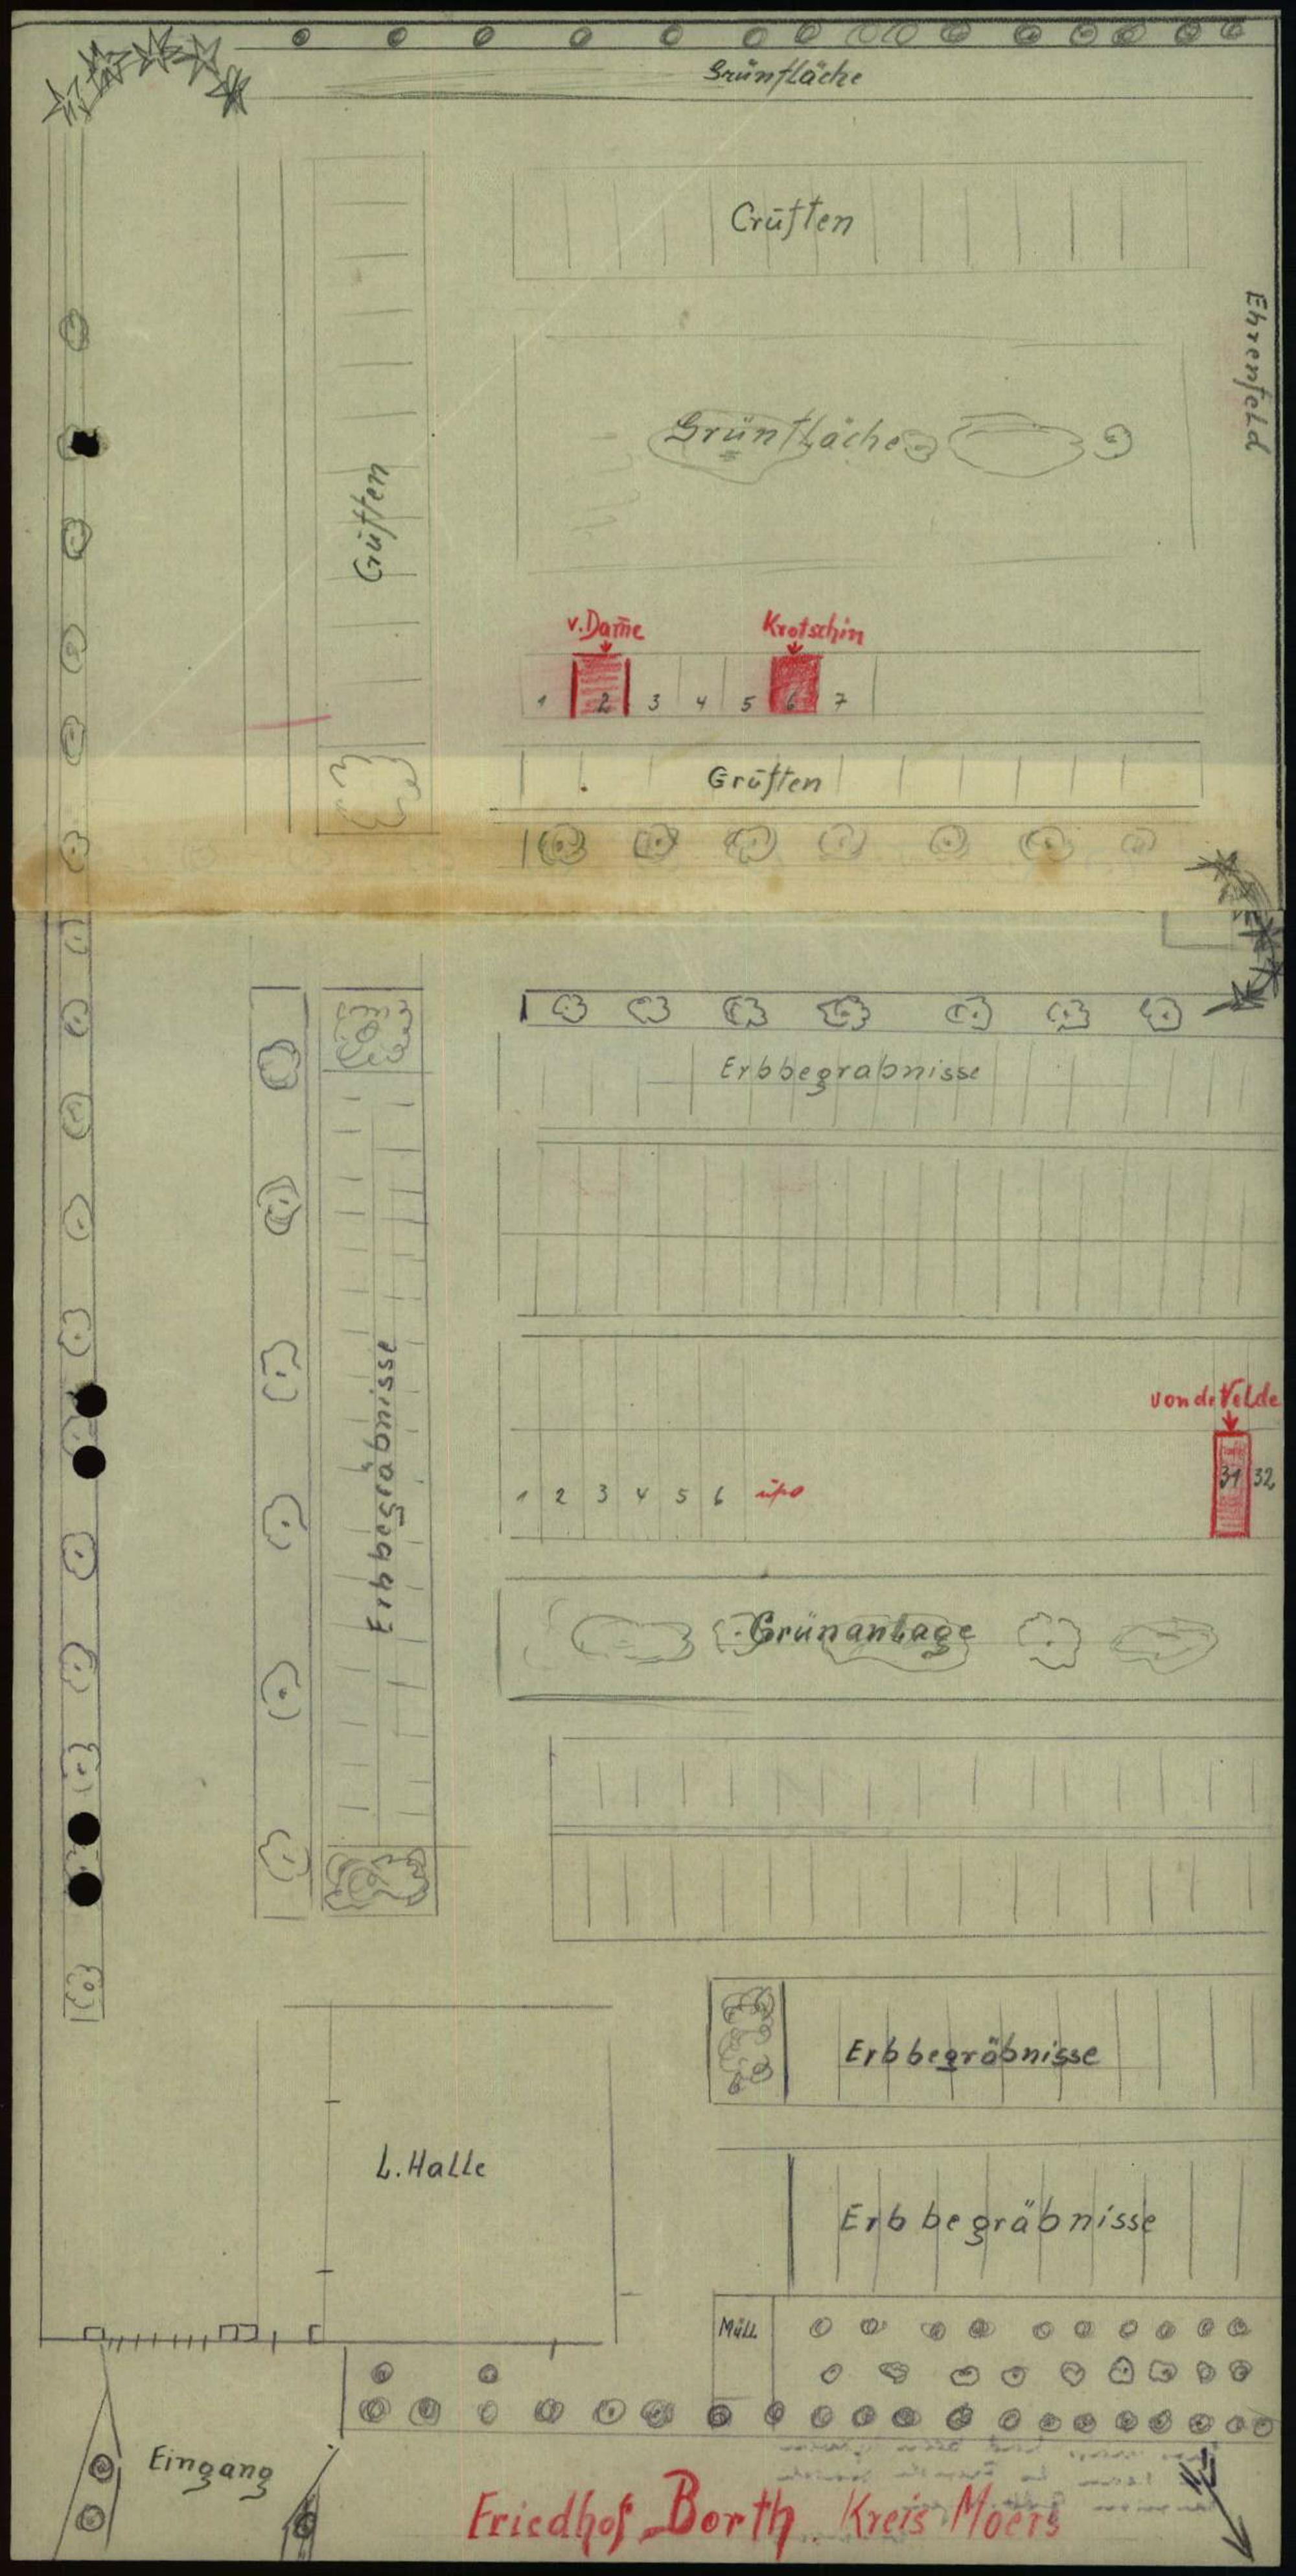 Grünfläche
Grüften
Ehrenfeld
Grünfläche
Grüften
v.Dam̄e
Krotschin
1 2 3 4 5 6 7
Grüften
Erbbegräbnisse
Erbbegräbnisse
von de Velde
1 2 3 4 5 6 usw 31 32
Grünanlage
Erbbegräbnisse
L. Halle
Erbbegräbnisse
Müll
Eingang
N
Friedhof Borth. Kreis Moers